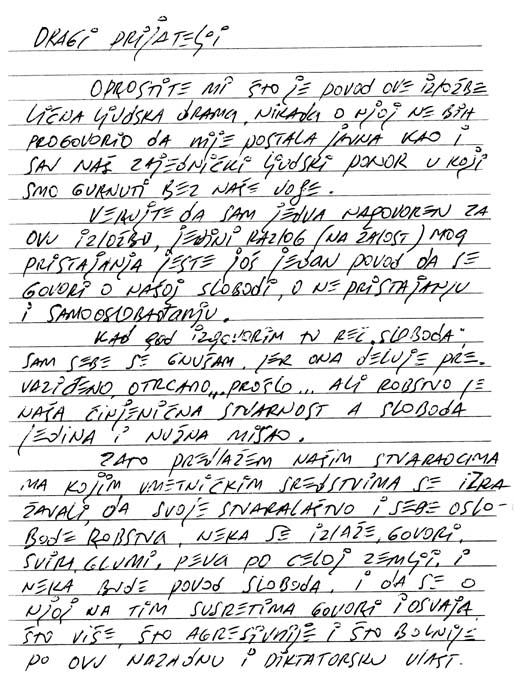 DRAGI PRIJATELJI
OPROSTITE MI ŠTO JE POVOD OVE IZLOŽBE
LIČNA LJUDSKA DRAMA, NIKADA O NJOJ NE BIH
PROGOVORIO DA NIJE POSTALA JAVNA KAO I
SAV NAŠ ZAJEDNIČKI LJUDSKI PONOR U KOJI
SMO GURNUTI BEZ NAŠE VOLJE.
VERUJTE DA SAM JEDVA NAGOVOREN ZA
OVU IZLOŽBU, JEDINI RAZLOG (NA ŽALOST) MOG
PRISTAJANJA JESTE JOŠ JEDAN POVOD DA SE
GOVORI O NAŠOJ SLOBODI, O NE PRISTAJANJU
I SAMOOSLOBAĐANJU.
KAD GOD IZGOVORIM TU REČ „SLOBODA“
SAM SEBE SE GNUŠAM, JER ONA DELUJE PRE-
VAZIĐENO, OTRCANO,.. PROŠLO... ALI ROBSTVO JE
NAŠA ČINJENIČNA STVARNOST A SLOBODA
JEDINA I NUŽNA MISAO.
ZATO PREDLAŽEM NAŠIM STVARAOCIMA
MA KOJIM UMETNIČKIM SREDSTVIMA SE IZRA
ŽAVALI, DA SVOJE STVARALAŠTVO I SEBE OSLO-
BODE ROBSTVA, NEKA SE IZLAŽE, GOVORI,
SVIRA, GLUMI, PEVA PO CELOJ ZEMLJI, I
NEKA BUDE POVOD SLOBODA, I DA SE O
NJOJ NA TIM SUSRETIMA GOVORI I OSVAJA
ŠTO VIŠE, ŠTO AGRESIVNIJE I ŠTO BOLNIJE
PO OVU NAZADNU I DIKTATORSKU VLAST.